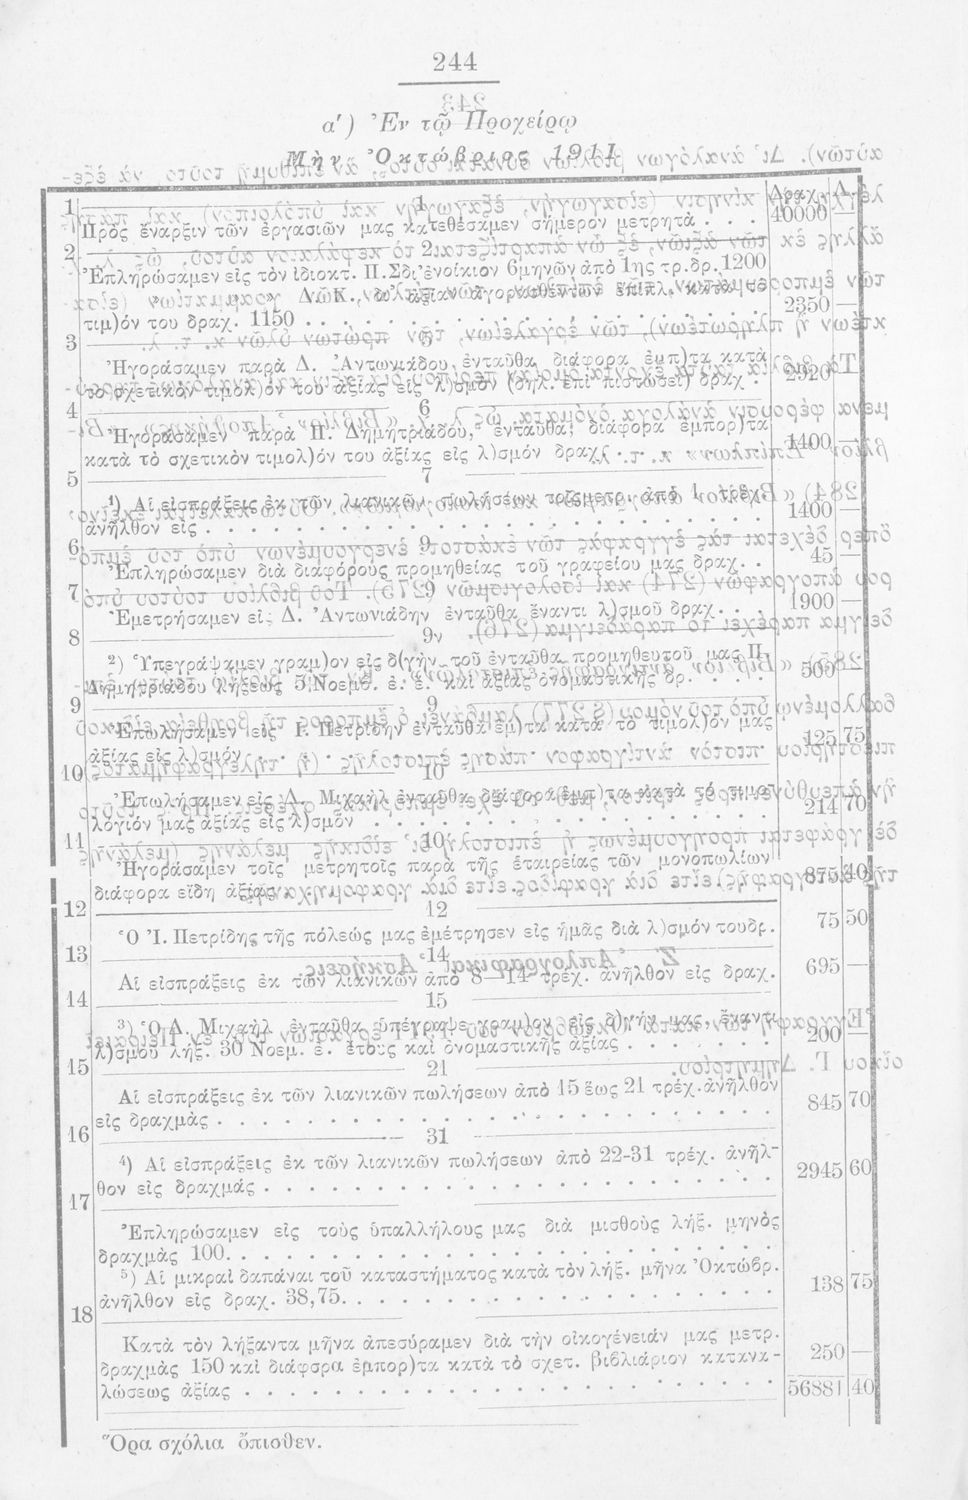 244
α′) Ἐν τῷ Προχείρῳ
Μὴν Ὀκτώβριος 1911
Δραχ. Λ.
1 1
Πρὸς ἔναρξιν τῶν ἐργασιῶν μας κατεθέσαμεν σήμερον μετρητὰ . . . 40000 —
2 2
Ἐπληρώσαμεν εἰς τὸν ἰδιοκτ. Π. Σδι' ἐνοίκιον 6μηνῶν ἀπὸ 1ης τρ. δρ. 1200
» » Δ. Κ. δι' ἀξίαν ἀγορασθέντων ἐπίπλ. κατὰ τὸ
τιμ)όν του δραχ. 1150 . . . . 2350 —
3
Ἠγοράσαμεν παρὰ Δ. Ἀντωνιάδου, ἐνταῦθα διάφορα ἐμπ)τα κατὰ
τὸ σχετικὸν τιμολ)όν του ἀξίας εἰς λ)σμὸν (δηλ. ἐπὶ πιστώσει) δραχ . 2920
4 6
Ἠγοράσαμεν παρὰ Π. Δημητριάδου, ἐνταῦθα, διάφορα ἐμπορ)τα
κατὰ τὸ σχετικὸν τιμολ)όν του ἀξίας εἰς λ)σμόν δραχ. 1400 —
5 7
¹) Αἱ εἰσπράξεις ἐκ τῶν λιανικῶν πωλήσεων τοῖς μετρ. ἀπὸ 1 τρέχ.
ἀνῆλθον εἰς . . . . 1400 —
6 9
Ἐπληρώσαμεν διὰ διαφόρους προμηθείας τοῦ γραφείου μας δραχ. . . 45 —
7 9
Ἐμετρήσαμεν εἰς Δ. Ἀντωνιάδην ἐνταῦθα ἔναντι λ)σμοῦ δραχ. . . 1900 —
8 9ν
²) Ὑπεγράψαμεν γραμ)ον εἰς δ)γὴν τοῦ ἐνταῦθα προμηθευτοῦ μας Π.
Δημητριάδου λήξεως 5 Νοεμβ. ἐ. ἔ. καὶ ἀξίας ὀνομαστικῆς δρ. . . . 500 —
9 9
Ἐπωλήσαμεν εἰς Ι. Πετρίδην ἐνταῦθα ἐμ)τα κατὰ τὸ τιμολ)όν μας
ἀξίας εἰς λ)σμόν . . . . 125 75
10 10
Ἐπωλήσαμεν εἰς Δ. Μιχαὴλ ἐνταῦθα διάφορα ἐμπ)τα κατὰ τὸ τιμο-
λόγιόν μας ἀξίας εἰς λ)σμόν . . . . 214 70
11 10
Ἠγοράσαμεν τοῖς μετρητοῖς παρὰ τῆς ἑταιρείας τῶν μονοπωλίων
διάφορα εἴδη ἀξίας 875 40
12 12
Ὁ Ἰ. Πετρίδης τῆς πόλεώς μας ἐμέτρησεν εἰς ἡμᾶς διὰ λ)σμόν του δρ. 75 50
13 14
Αἱ εἰσπράξεις ἐκ τῶν λιανικῶν ἀπὸ 8—14 τρέχ. ἀνῆλθον εἰς δραχ. 695 —
14 15
³) Ὁ Δ. Μιχαὴλ ἐνταῦθα ὑπέγραψε γραμ)ον εἰς δ)γήν μας, ἔναντι
λ)σμοῦ λήξ. 30 Νοεμ. ἐ. ἔτους καὶ ὀνομαστικῆς ἀξίας . . . . 200 —
15 21
Αἱ εἰσπράξεις ἐκ τῶν λιανικῶν πωλήσεων ἀπὸ 15 ἕως 21 τρέχ. ἀνῆλθον
εἰς δραχμὰς . . . . 845 70
16 31
⁴) Αἱ εἰσπράξεις ἐκ τῶν λιανικῶν πωλήσεων ἀπὸ 22-31 τρέχ. ἀνῆλ-
θον εἰς δραχμάς . . . . 2945 60
17
Ἐπληρώσαμεν εἰς τοὺς ὑπαλλήλους μας διὰ μισθοὺς λήξ. μηνὸς
δραχμὰς 100. . . . .
⁵) Αἱ μικραὶ δαπάναι τοῦ καταστήματος κατὰ τὸν λήξ. μῆνα Ὀκτώβρ.
ἀνῆλθον εἰς δραχ. 38,75. . . . . 138 75
18
Κατὰ τὸν λήξαντα μῆνα ἀπεσύραμεν διὰ τὴν οἰκογένειάν μας μετρ.
δραχμὰς 150 καὶ διάφορα ἐμπορ)τα κατὰ τὸ σχετ. βιβλιάριον κατανα-
λώσεως ἀξίας . . . . 250 —
56881 40
Ὅρα σχόλια ὄπισθεν.